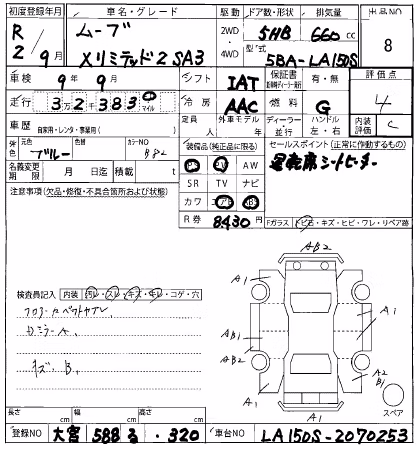 初度登録年月 車名・グレード 駆動 ドア数・形状 排気量 出品NO
R 2 / 9月 ムーブ 2WD・4WD 5HB 660cc 8
Xリミテッド2 SA3 型式 5BA-LA150S
車検 9年 9月 シフト IAT 保証書 有・無 評価点
走行 3万2千383 マイル 冷房 AAC 燃料 G 4
車歴 自家用・レンタ・事業用( ) 定員 人 外車モデル 年 ディーラー・並行 ハンドル 左・右 内装評価 C
外装色 元色 ブルー 色替 カラーNO B82 装備品(純正品に限る) セールスポイント(正常に動作するもの)
名義変更期限 月 日迄 積載 t PS PW AW 運転席シートヒーター
注意事項(欠品・修復・不具合箇所および状態) SR TV ナビ
カワ エアB ABS
R券 8430円 Fガラス トビ石・キズ・ヒビ・ワレ・リペア跡
AB2
A1 A1
検査員記入 内装 汚レ・スレ・キズ・キレ・コゲ・穴
フロアカーペットヤブレ
AB1 A1
ミラーA
AB2
キズB
A2
B1
A1 A1
A1 スペア
長さ cm 幅 cm 高さ cm
登録NO 大宮 588 る ・320 車台NO LA150S-2070253